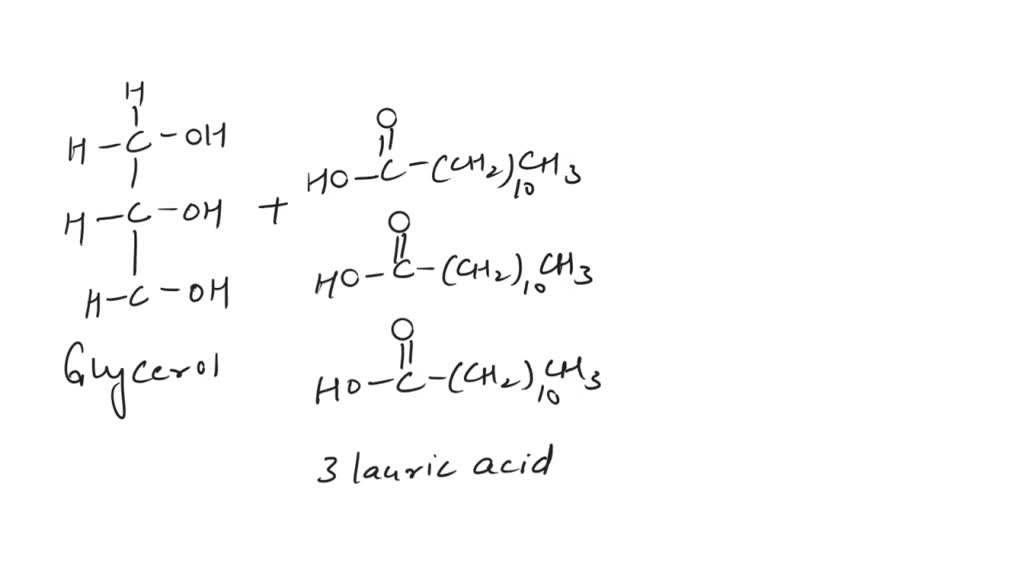 H
H-C-OH
H-C-OH
H-C-OH
Glycerol
+
O
HO-C-(CH2)10CH3
O
HO-C-(CH2)10CH3
O
HO-C-(CH2)10CH3
3 lauric acid